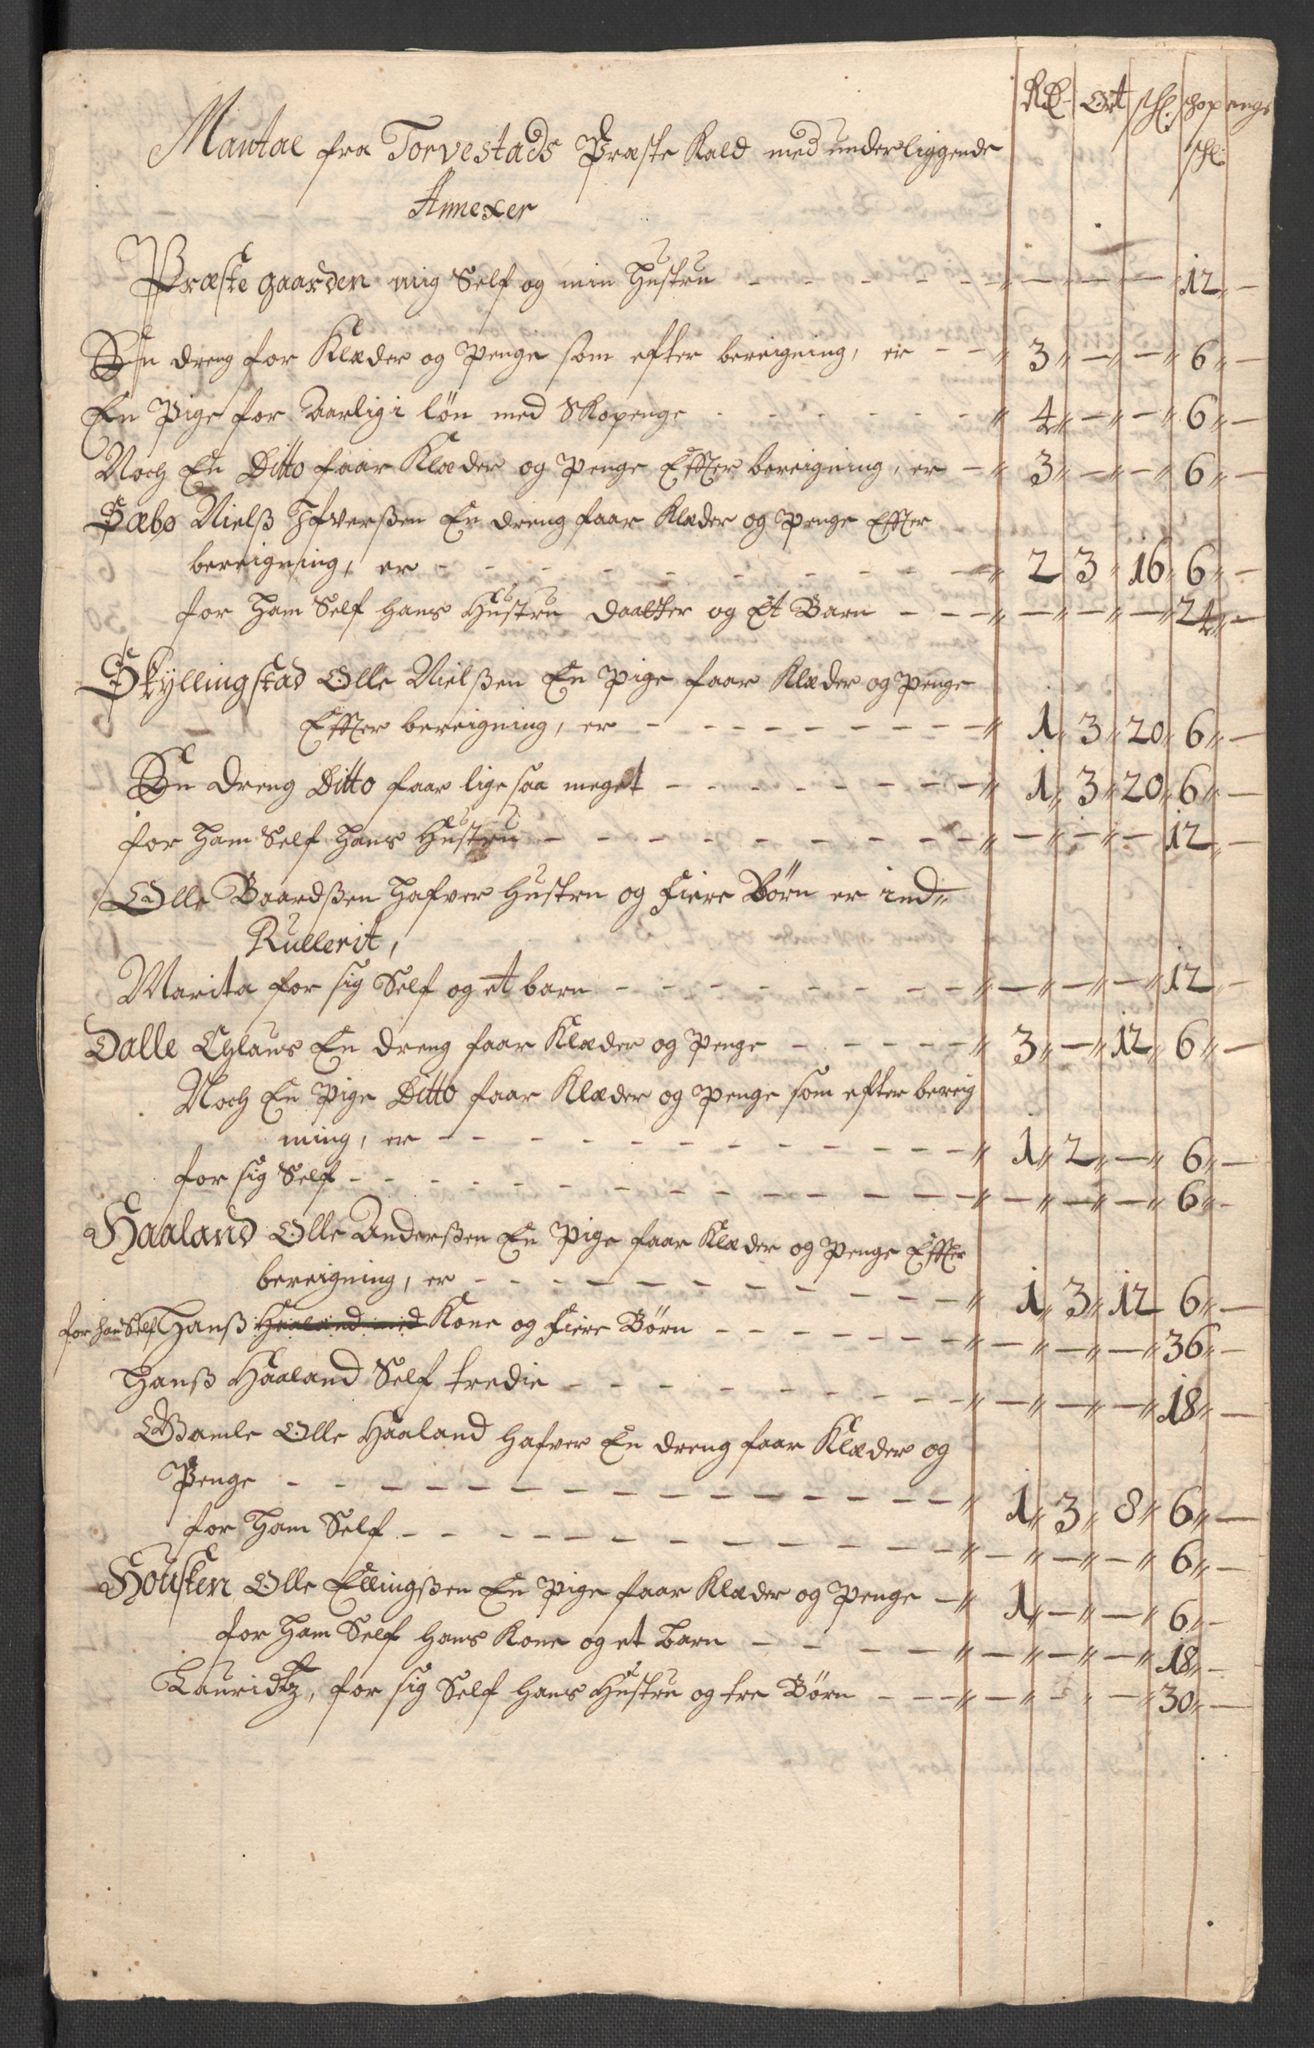 Rdl Ort schl. schopenge
schl:
Mantal fra Torvestads Præste Kald med underliggende
Annexer
Præste gaarden mig Self og min Hustru - - - - 12 -
En dreng for Klæder og Penge som efter bereigning, er - - 3 - - 6 -
En Pige for Aarlig i løn med Skopenge - - - - 4 - - 6 -
Noch En Ditto faar Klæder og Penge Effter bereigning, er - 3 - - 6 -
Sæbø Nielß Ifverßen En dreng faar Klæder og Penge Effter
bereigning, er - - - - 2 3 16 6 -
for Ham Self Hans Hustru Daatter og Et Barn - - - - - 24 -
Skyllingstad Olle Nielßen En Pige faar Klæder og Penge
Effter bereigning, er - - - - 1 3 20 6 -
En dreng Ditto faar lige saa meget - - - - 1 3 20 6 -
for Ham Self Hans Hustru - - - - - - - 12 -
Olle Baardßen Hafver Hustru og Fiere Børn er ind-
Rullerit,
Marita for sig Self og et barn - - - - - - - 12 -
Dalle Claus En dreng faar Klæder og Penge - - - - 3 - 12 6 -
Noch En Pige Ditto faar Klæder og Penge som efter bereig
ning, er - - - - 1 2 - 6 -
for sig Self - - - - - - - 6 -
Haaland Olle Anderßen En Pige faar Klæder og Penge Effter
bereigning, er - - - - 1 3 12 6 -
for ham Self Hanß Haaland med Kone og Fiere Børn - - - - - - - 36 -
Hanß Haaland Self tredie - - - - - - - 18 -
Gamle Olle Haaland Hafver En dreng faar Klæder og
Penge - - - - 1 3 8 6 -
for Ham Self - - - - - - - 6 -
Housken Olle Ellingßen En Pige faar Klæder og Penge - 1 - - 6 -
for Ham Self Hans Kone og et barn - - - - - - - 18 -
Lauridtz, for sig Self Hans Hustru og tre Børn - - - - - - 30 -